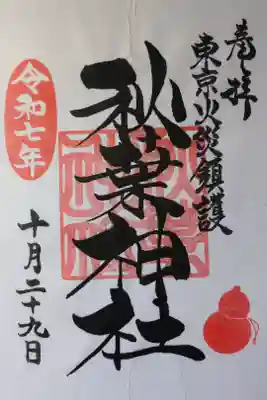 奉拝
東京火災鎮護
秋葉神社
令和七年
十月二十九日